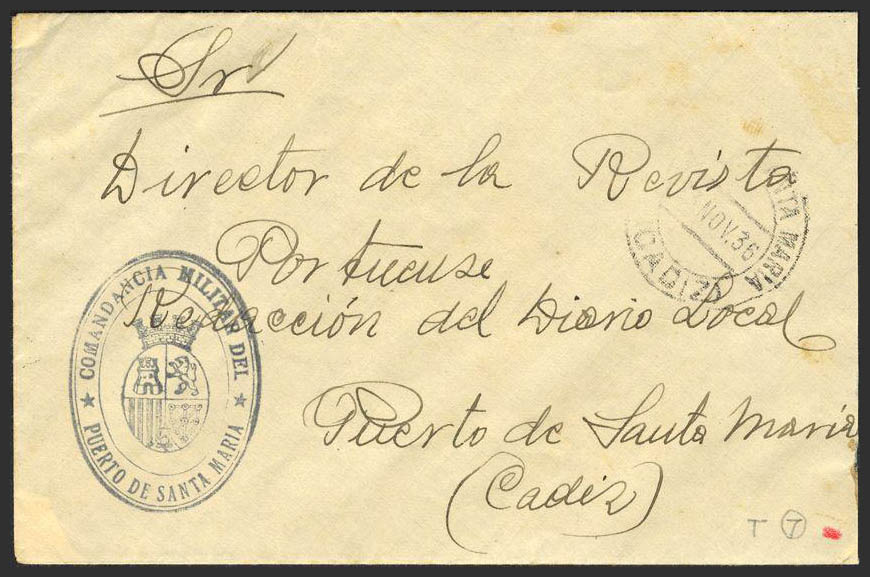 Sr
Director de la Revista
Portuense
Redacción del Diario Local
Puerto de Santa Maria
(Cadiz)
COMANDANCIA MILITAR DEL
★ PUERTO DE SANTA MARIA ★
NTA MARIA
NOV.36
CADIZ
T 7